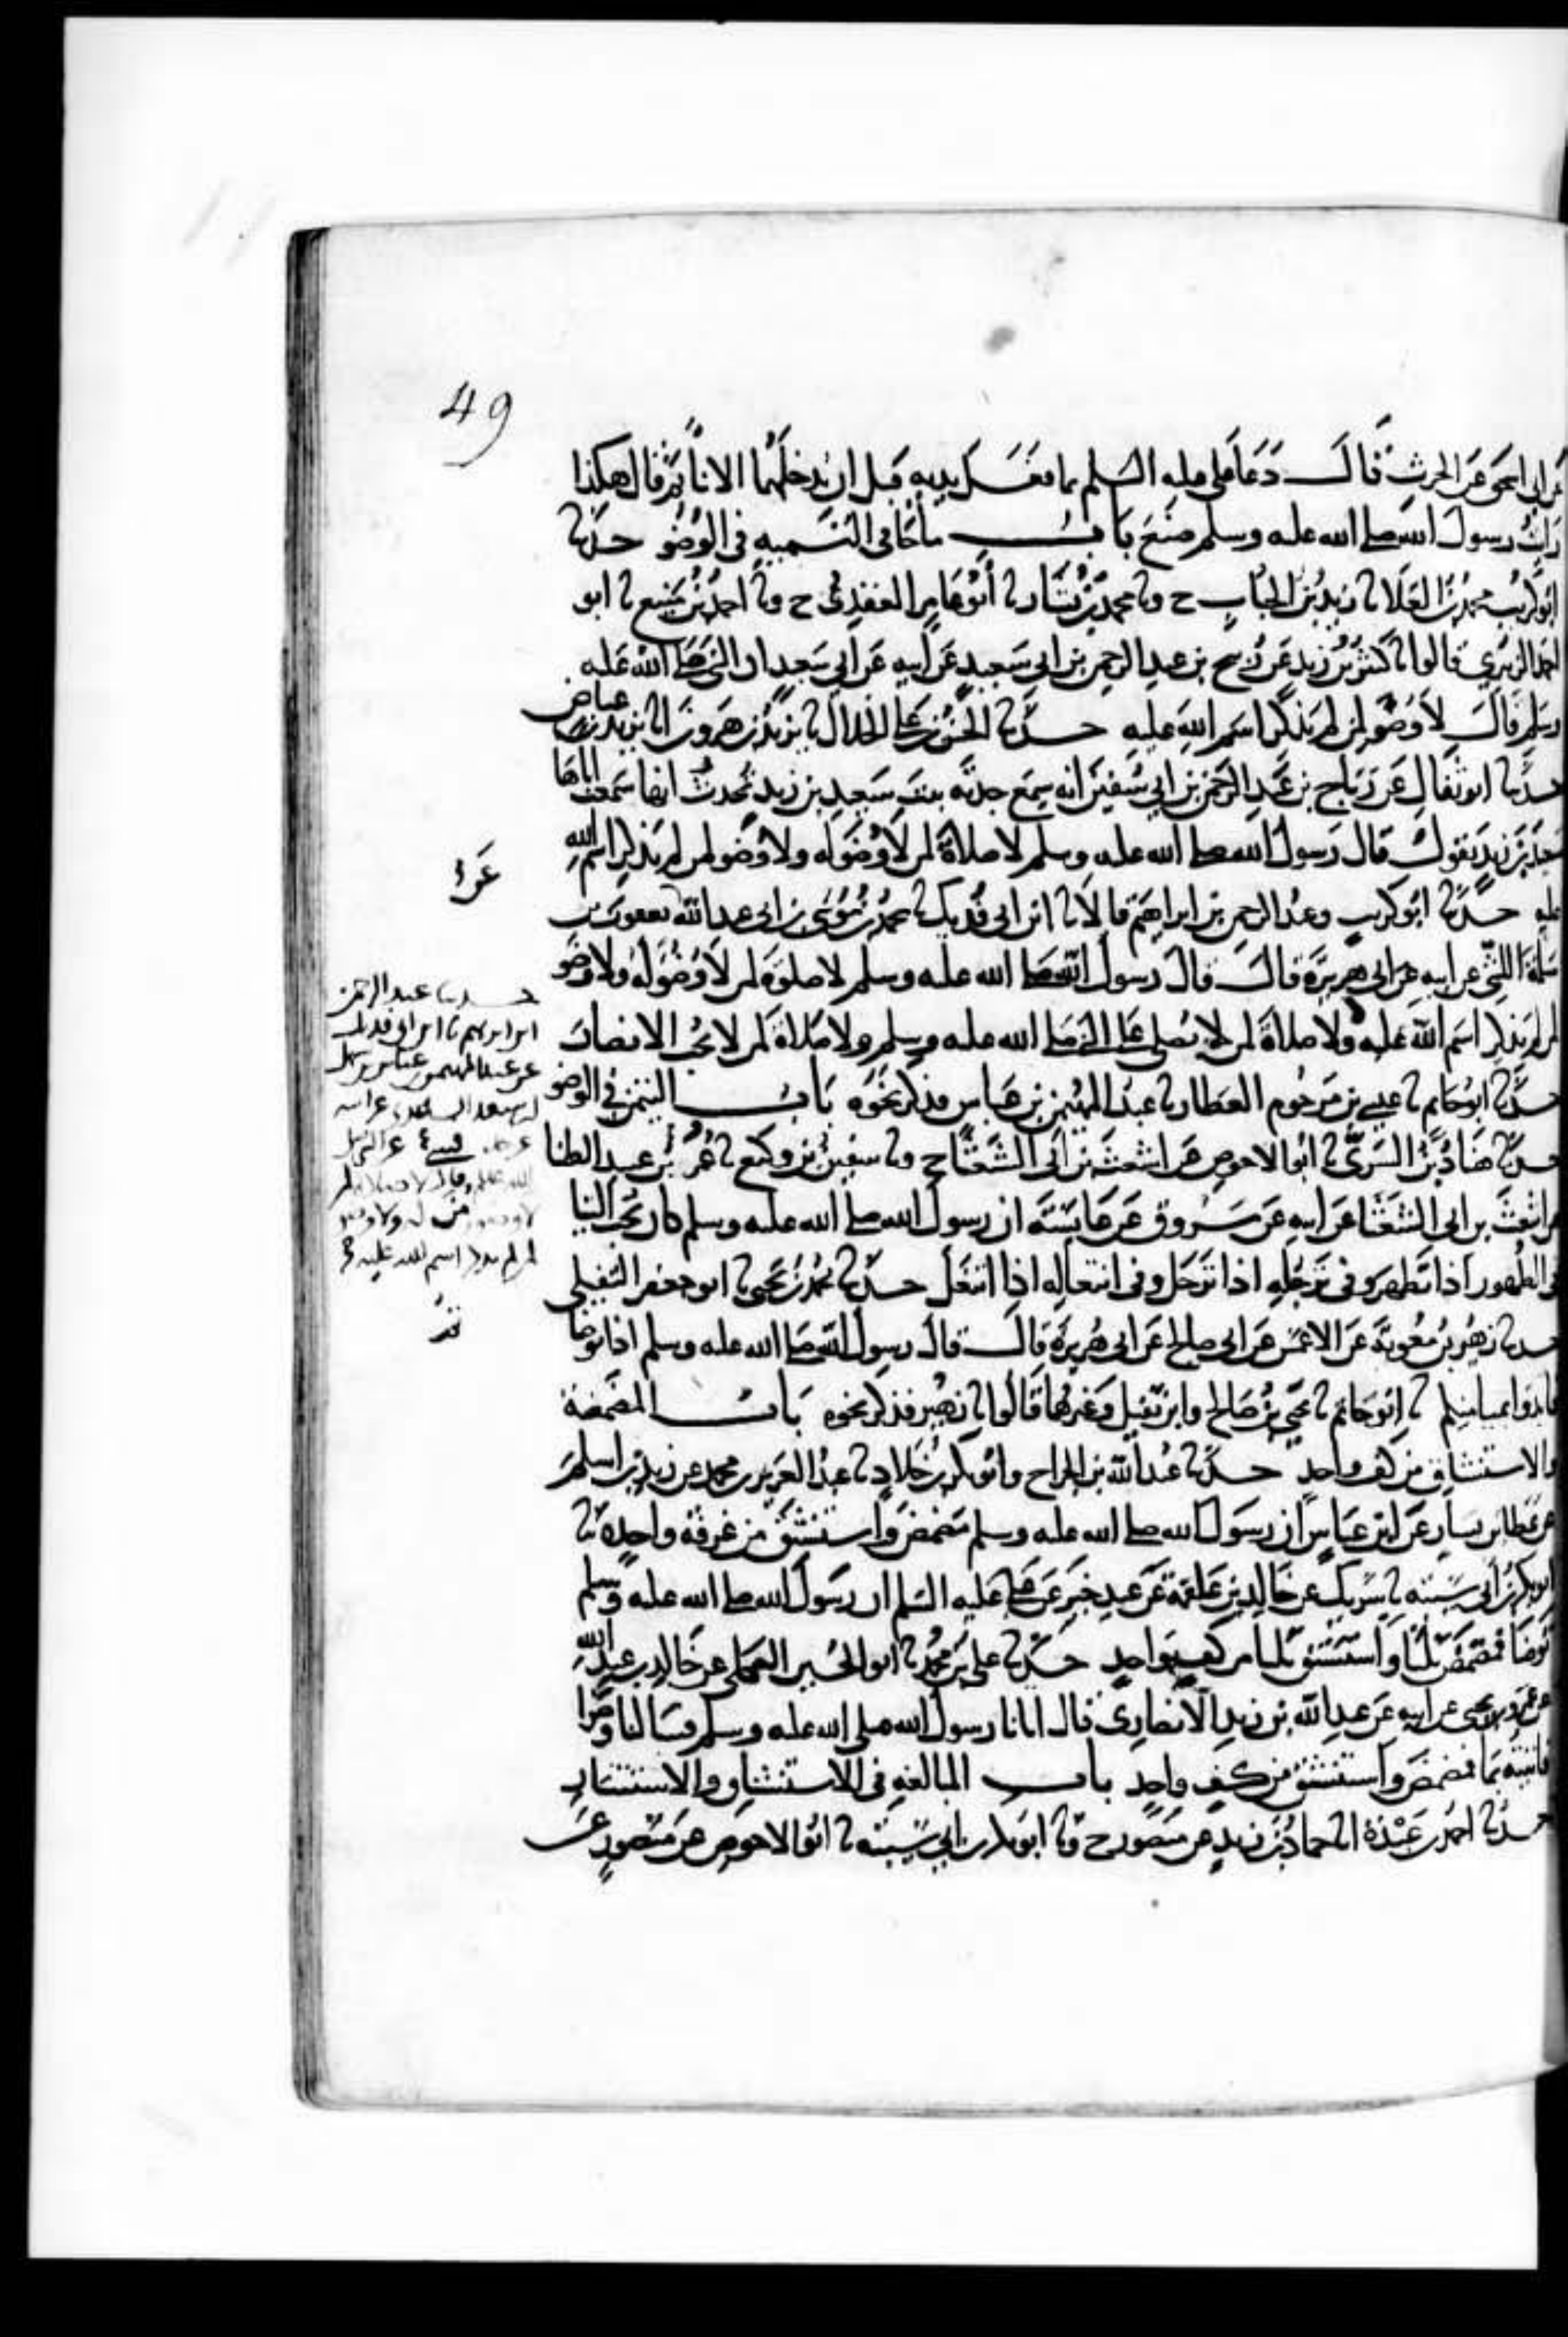 49
عن ابي اسحق عن الحرث قال دعا علي عليه السلم بما فغسل يديه قبل ان يدخلهما الانا ثم قال هكذا
رايت رسول الله صلى الله عليه وسلم صنع باب ما جا في التسميه في الوضو حدثنا
ابو كريب محمد بن العلا نا زيد بن الحباب ح ونا محمد بن بشار نا ابو عامر العقدي ح ونا احمد بن منيع نا ابو
احمد الزبيري قالوا نا كثير بن زيد عن ربيح بن عبد الرحمن بن ابي سعيد عن ابيه عن ابي سعيد ان النبي صلى الله عليه
وسلم قال لا وضو لمن لم يذكر اسم الله عليه حدثنا الحسن بن علي الخلال نا يزيد بن هرون انا يزيد بن عياض
حدثنا ابو ثفال عن رباح بن عبد الرحمن بن ابي سفين انه سمع جدته بنت سعيد بن زيد تحدث انها سمعت اباها
سعيد بن زيد يقول قال رسول الله صلى الله عليه وسلم لا صلاة لمن لا وضو له ولا وضو لمن لم يذكر اسم الله
عليه حدثنا ابو كريب وعبد الرحمن بن ابراهيم قالا نا ابن ابي فديك نا محمد بن موسى بن ابي عبد الله يعقوب بن
سلمة الليثي عن ابيه عن ابي هريرة قال قال رسول الله صلى الله عليه وسلم لا صلوة لمن لا وضو له ولا وضو
لمن لم يذكر اسم الله عليه ولا صلاة لمن لا يصلي على النبي صلى الله عليه وسلم ولا صلاة لمن لا يحب الانصار
حدثنا ابو حاتم نا عبيس بن مرحوم العطار نا عبد المهيمن بن عباس فذكر نحوه باب التيمن في الوضو
حدثنا هناد بن السري نا ابو الاحوص عن اشعث بن ابي الشعثا ح ونا سفين بن وكيع نا عمر بن عبيد الطنا
عن اشعث بن ابي الشعثا عن ابيه عن مسروق عن عايشة ان رسول الله صلى الله عليه وسلم كان يحب التيا
في الطهور اذا تطهر وفي ترجله اذا ترجل وفي انتعاله اذا انتعل حدثنا محمد بن يحيى نا ابو جعفر النفيلي
حدثنا زهير بن معوية عن الاعمش عن ابي صالح عن ابي هريرة قال قال رسول الله صلى الله عليه وسلم اذا توضا
فابدوا بميامنكم نا ابو حاتم نا يحيى بن صالح وابن نفيل وغيرهما قالوا نا زهير فذكر نحوه باب المضمضة
والاستنشاق من كف واحد حدثنا عبد الله بن الجراح وابو بكر بن خلاد نا عبد العزيز بن محمد عن زيد بن اسلم
عن عطا بن يسار عن ابن عباس ان رسول الله صلى الله عليه وسلم مضمض واستنشق من غرفة واحدة نا
ابو بكر بن ابي شيبة نا شريك عن خالد بن علقمة عن عبد خير عن علي عليه السلم ان رسول الله صلى الله عليه وسلم
توضا فمضمض ثلثا واستنشق ثلثا من كف واحد حدثنا علي بن محمد نا ابو الحسين العكلي عن خالد بن عبد الله
عن عمرو بن يحيى عن ابيه عن عبد الله بن زيد الانصاري قال اتانا رسول الله صلى الله عليه وسلم فسالنا وضوا
فاتيته بما فمضمض واستنشق من كف واحد باب المبالغه في الاستنشاق والاستنثار
حدثنا احمد بن عبدة انا حماد بن زيد عن منصور ح ونا ابو بكر بن ابي شيبة نا ابو الاحوص عن منصور عن
حدثنا عبد الرحمن
ابن ابراهيم نا ابن ابي فديك
عن عبد المهيمن بن عباس بن سهل
بن سعد الساعدي عن ابيه
عن جده عن النبي صلى
الله عليه وقال لا صلاة لمن
لا وضو له ولا وضو
لمن لم يذكر اسم الله عليه